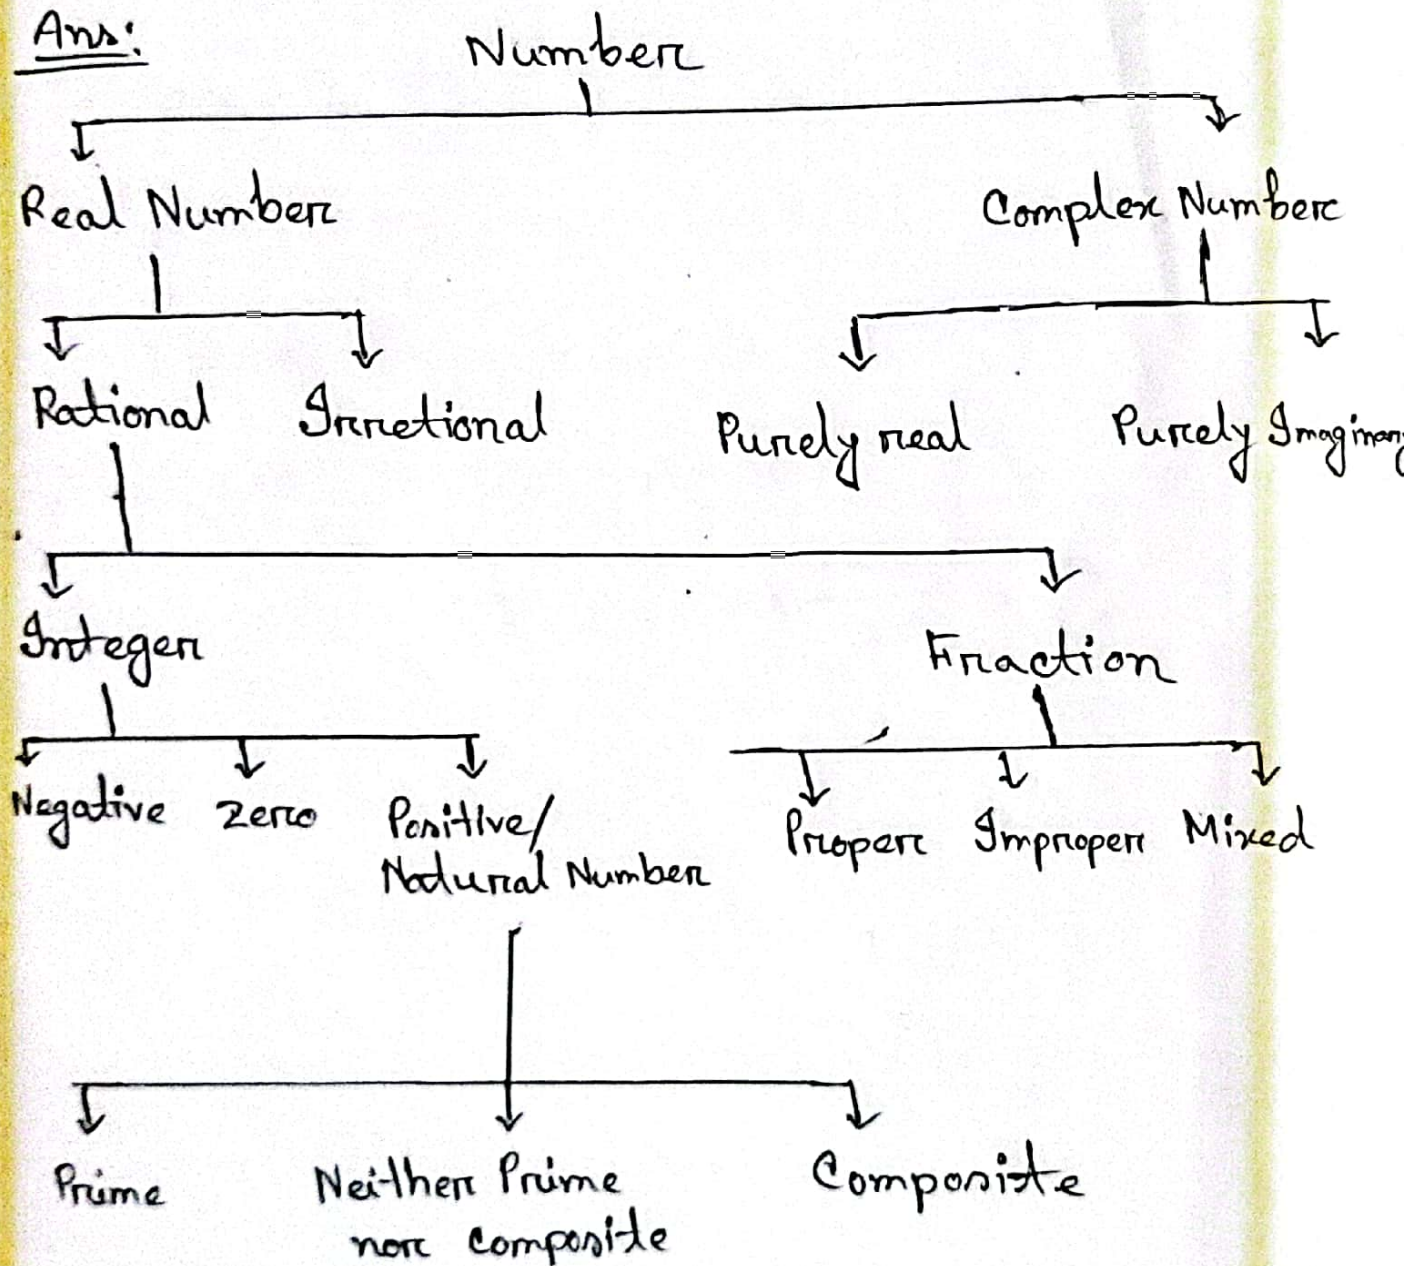 Ans:
Number
Real Number Complex Number
Rational Irretional Purely real Purely Imaginary
Integer Fraction
Negative Zero Positive/ Proper Improper Mixed
Natural Number
Prime Neither Prime Composite
nor composite